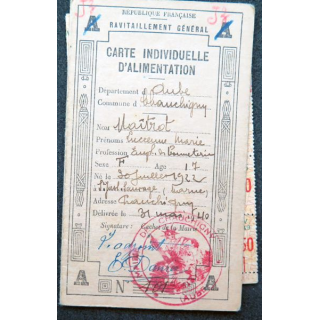 52 52
RÉPUBLIQUE FRANÇAISE
A RAVITAILLEMENT GÉNÉRAL A
CARTE INDIVIDUELLE
D'ALIMENTATION
Département d'Aube
Commune d Chauchigny
Nom Maitrot
Prénoms Lucienne Marie
Profession Empl. de Bonneterie
Sexe F Age 17
Né le 30 Juillet 1922
à (Marne)
Adresse Chauchigny
Délivrée le 31 mai 1940
Signature : Cachet de la Mairie
CHAUCHIGNY
(AUBE)
A N° A